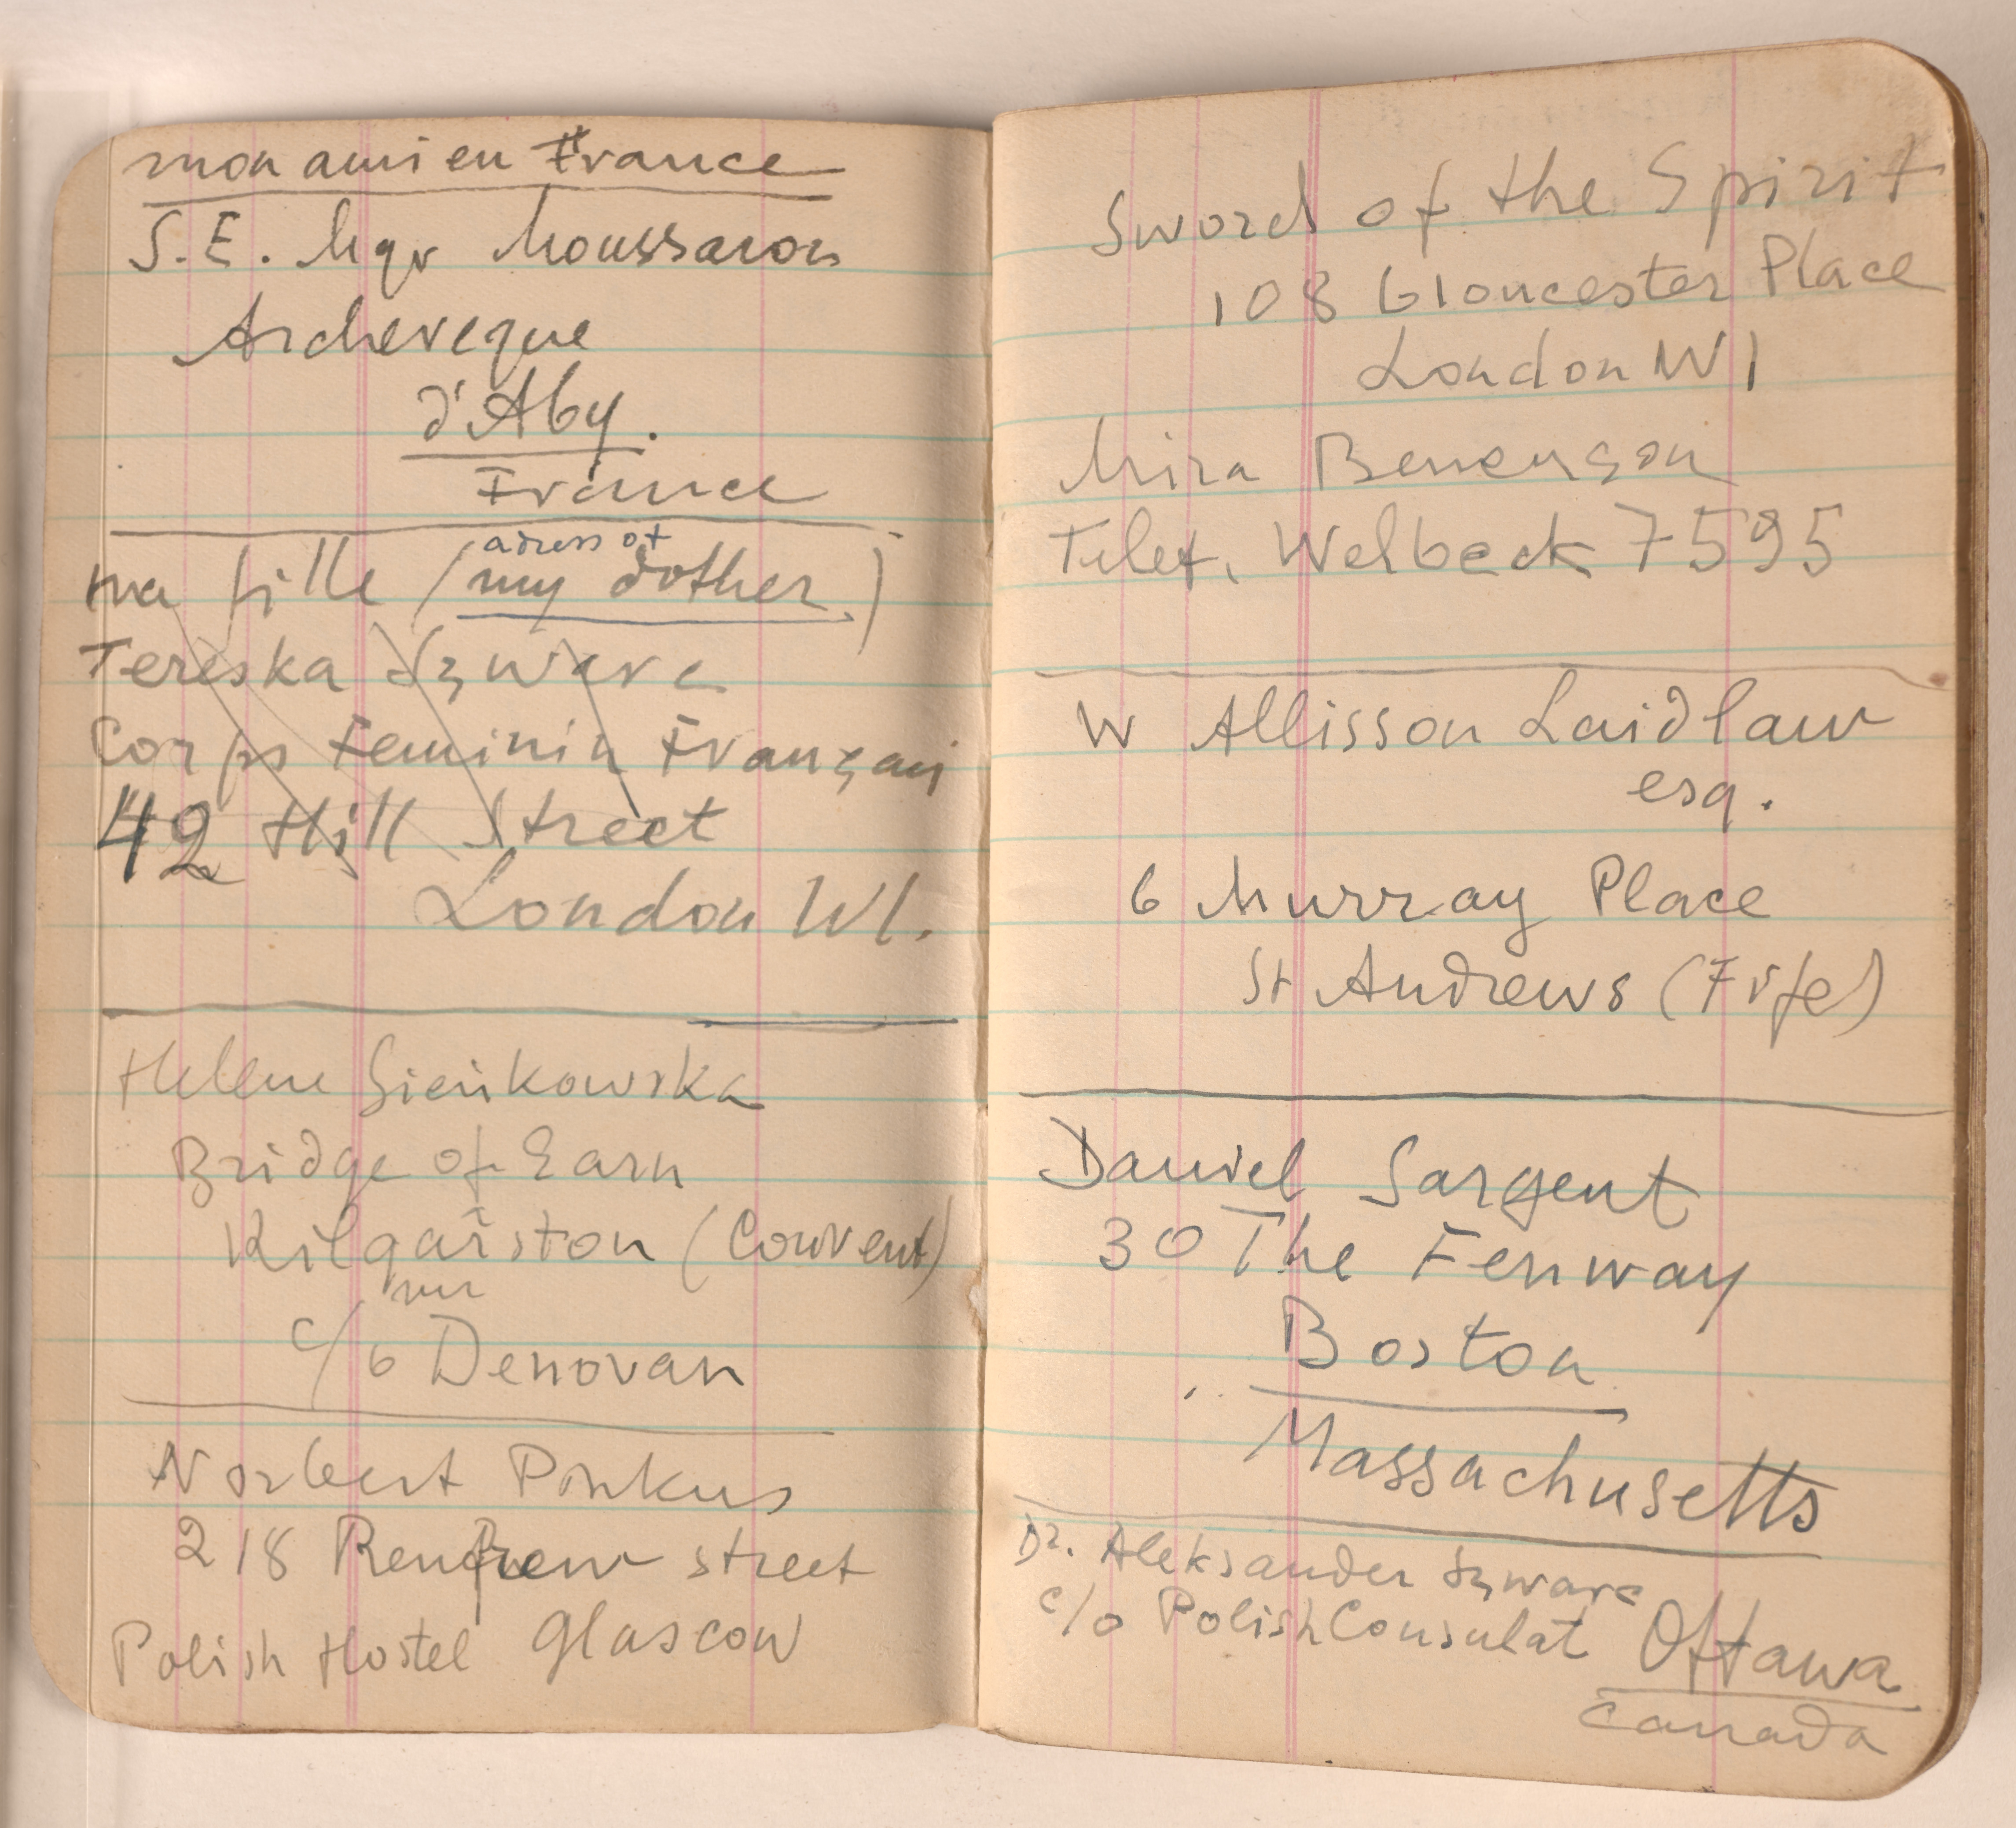 mon ami en France
S.E. Mgr Moussaron
Archeveque
d'Aby.
France
adress of
ma fille (my dother)
Tereska Szwarc
Corps Feminin Français
42 Hill Street
London W1.
Helene Sieńkowska
Bridge of Earn
Kilgarston (Convent)
mr
c/o Denovan
Norbert Pinkus
218 Renfrew street
Polish Hostel Glascow
Sword of the Spirit
108 Gloucester Place
London W1
Mira Benenson
Telef. Welbeck 7595
W Allisson Laidlaw
esq.
6 Murray Place
St Andrews (Fife)
Daniel Sargent
30 The Fenway
Boston
Massachusetts
Dr. Aleksander Szwarc
c/o Polish Consulat Ottawa
Canada